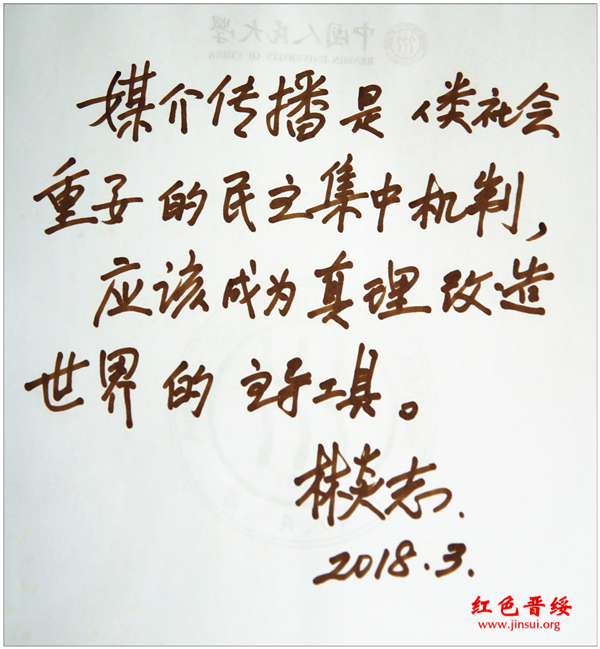 中國人民大學
RENMIN UNIVERSITY OF CHINA
媒介传播是人类社会
重要的民主集中机制,
应该成为真理改造
世界的主导工具。
林炎志.
2018.3.
红色晋绥
www.jinsui.org